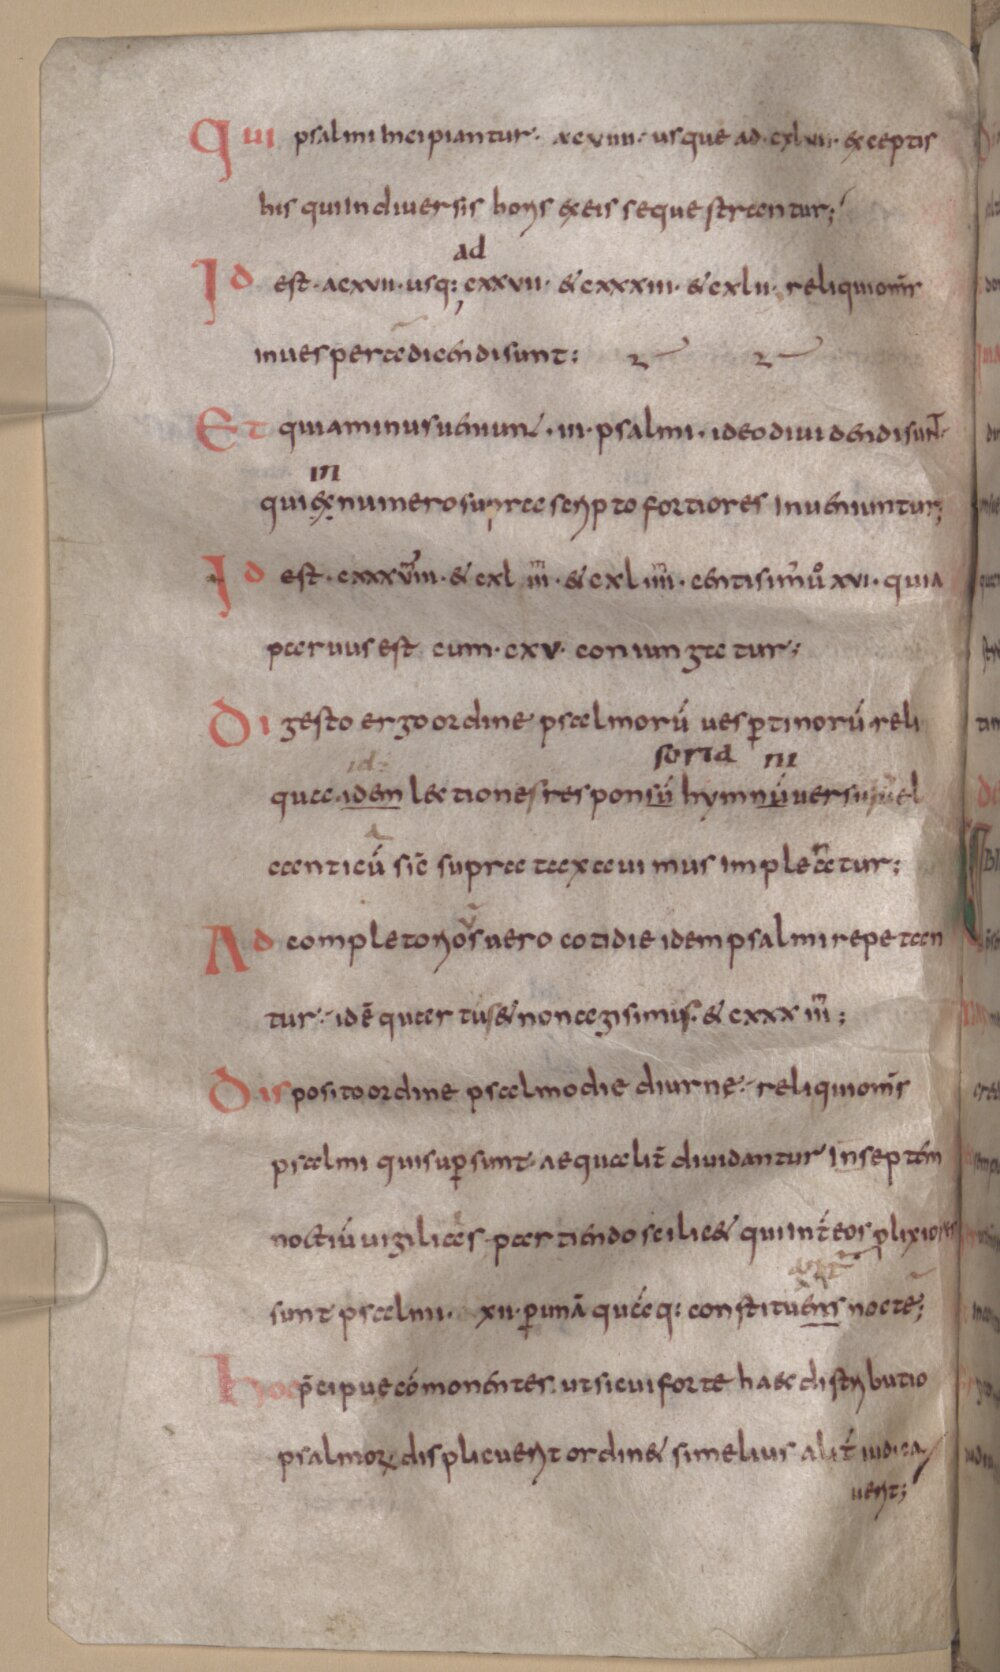 Qui psalmi incipiantur· a cviiii· usque ad· cxlvii· exceptis
his qui in diuersis horis ex eis sequestrantur;
ad
Id est· a cxvii· usq: cxxvii· & cxxxiii· & cxlii· reliqui om̅s
in uespera dicendi sunt:
Et quia minus ueniunt· iii· psalmi· ideo diuidendi sunt·
in
qui ex numero suprascripto fortiores inueniuntur;
Id est· cxxxviii· & cxliii· & cxliiii· centisim' u° xvi· quia
paruus est cum· cxv· coniungatur;
Digesto ergo ordine psalmorū uesp̱tinorū reli
id: soria ni
qua· idem lectiones responsū hymnū uersu uel
canticū sic̄ supra taxauimus impleatur;
Ad completorios uero cotidie idem psalmi repetan
tur· id ē quartus & nonagisimus· & cxxxiii;
Disposito ordine psalmodie diurne· reliqui om̅s
psalmi qui sup̱sunt· aequalit̄ diuidantur in septem
noctiū uigilias· partiendo scilic& qui int̄ eos plixiores
sunt psalmi· xii· p̱ unā quāq: constituens noctē;
Hoc p̄cipue cōmonentes· ut si cui forte haec distributio
psalmoꝝ displicuerit ordin& si melius alit̄ iudica
uerit;